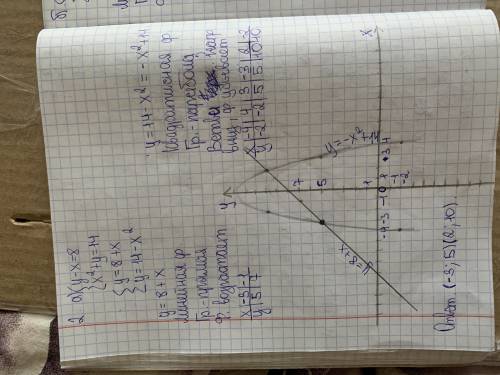 2. a) { y-x=8
{ x²+y=14
{ y=8+x
{ y=14-x²
y=8+x
линейная ф.
Гр.-прямая
Ф. возрастает
x | -3 | -1
y | 5 | 7
y=14-x²=-x²+14
Квадратичная ф.
Гр.-парабола
Ветви напр.
вниз, ф.
x | -4 | 4 | 3 | -3 | 2 | -2
y | -2 | -2 | 5 | 5 | 10 | 10
y
7
5
1
-4 -3 -1 0 1 3 4
-1
-2
x
y=-x²+14
Ответ: (-3; 5) (2; 10).